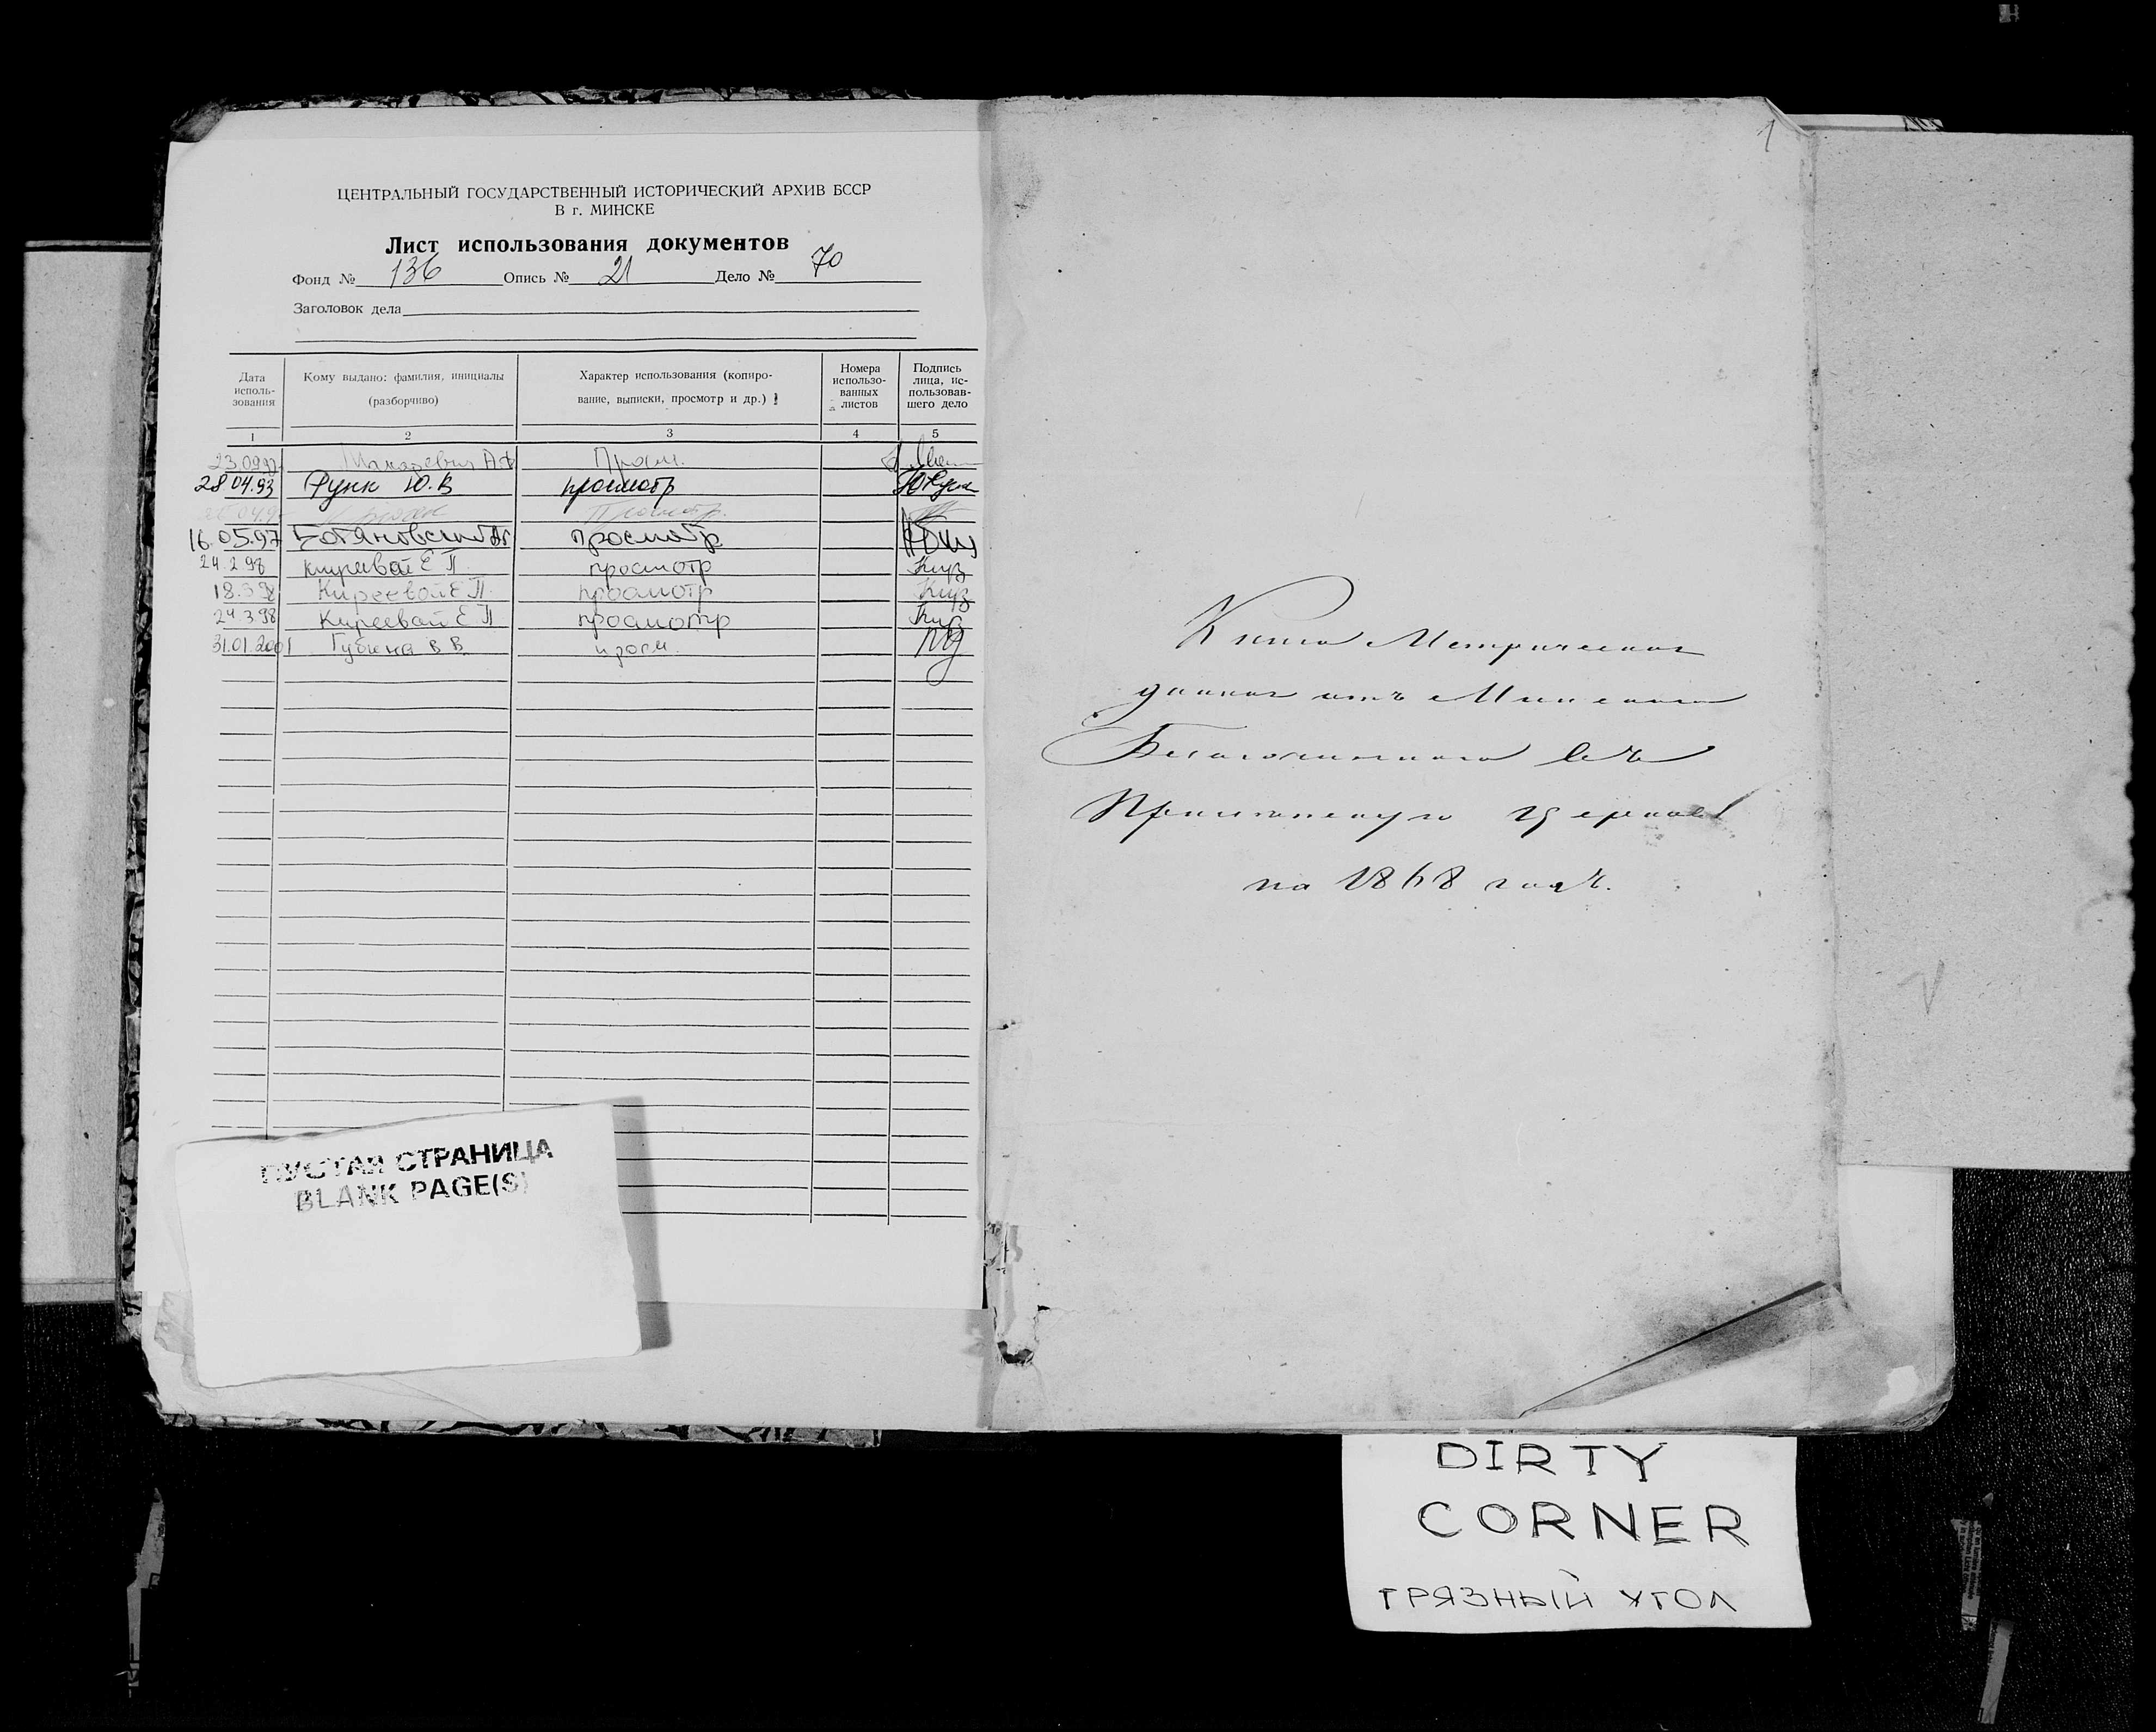 ЦЕНТРАЛЬНЫЙ ГОСУДАРСТВЕННЫЙ ИСТОРИЧЕСКИЙ АРХИВ БССР
В г. МИНСКЕ
Лист использования документов
Фонд № 136 Опись № 21 Дело № 70
Заголовок дела
Дата исполь-зования
Кому выдано: фамилия, инициалы (разборчиво)
Характер использования (копиро-вание, выписки, просмотр и др.)
Номера использо-ванных листов
Подпись лица, ис-пользовав-шего дело
1 2 3 4 5
Просм.
28 04.93 Функ Ю.В просмотр
Просмотр.
16.05.97 просмотр
24.2 98 Е П просмотр
Киреевой Е П. просмотр
24.3.98 Киреевай Е П просмотр
31.01.2001 Губина В В. просм.
ПУСТАЯ СТРАНИЦА
BLANK PAGE(S)
1
Книга Метрическая
данная отъ Минскаго
Благочиннаго въ
церковь
на 1868 годъ.
DIRTY
CORNER
ГРЯЗНЫЙ УГОЛ